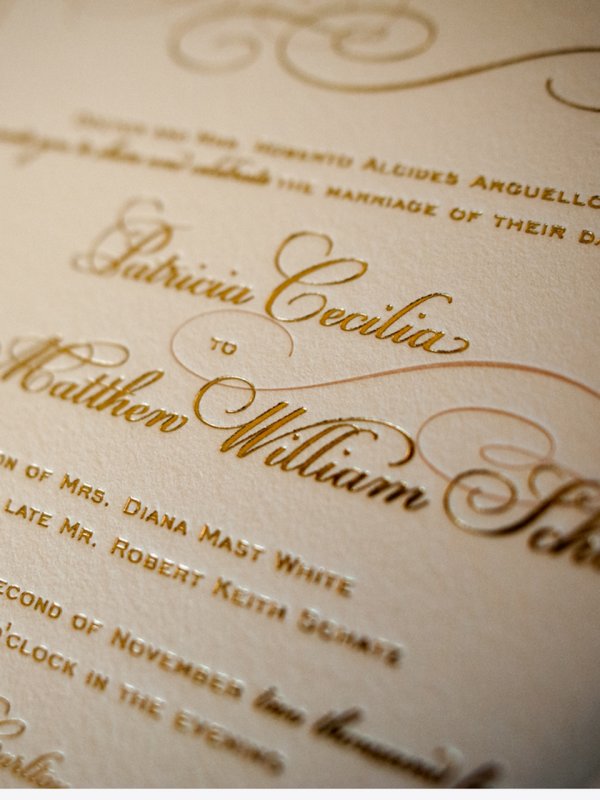 Mrs. Roberto Alcides Arguello
the marriage of their
Patricia Cecilia
to
Matthew William
of Mrs. Diana Mast White
late Mr. Robert Keith Schatz
econd of November two thousand
o'clock in the evening